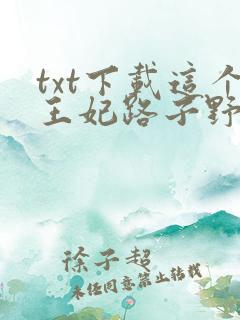 txt下載這个
王妃路子野
徐子超
未经同意禁止转载